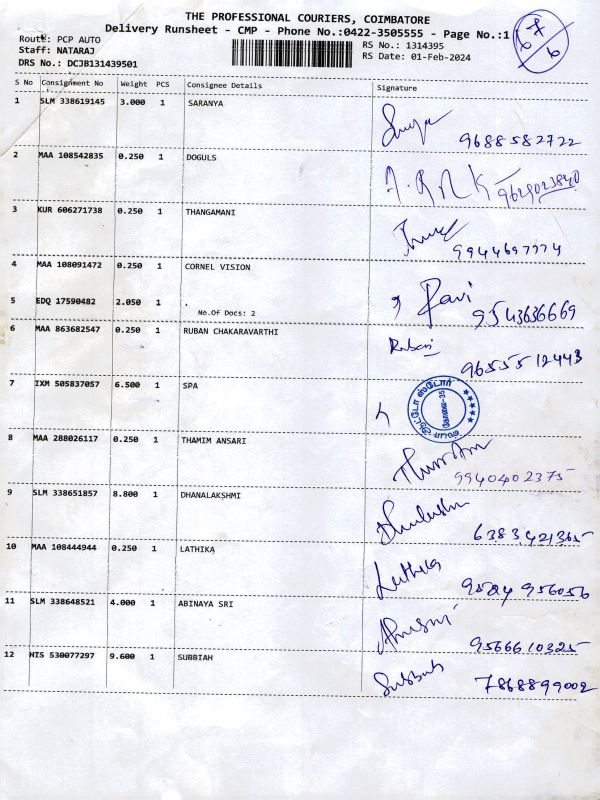 THE PROFESSIONAL COURIERS, COIMBATORE
Delivery Runsheet - CMP - Phone No.:0422-3505555 - Page No.:1
Route: PCP AUTO
Staff: NATARAJ
DRS No.: DCJB131439501
RS No.: 1314395
RS Date: 01-Feb-2024
S No Consignment No Weight PCS Consignee Details Signature
1 SLM 338619145 3.000 1 SARANYA
9688582722
2 MAA 108542835 0.250 1 DOGULS
9629023840
3 KUR 606271738 0.250 1 THANGAMANI
9944697774
4 MAA 108091472 0.250 1 CORNEL VISION
5 EDQ 17590482 2.050 1 . Ravi
No.Of Docs: 2 9543636669
6 MAA 863682547 0.250 1 RUBAN CHAKARAVARTHI
9655512443
7 IXM 505837057 6.500 1 SPA
கோவை-35
8 MAA 288026117 0.250 1 THAMIM ANSARI
9940402375
9 SLM 338651857 8.800 1 DHANALAKSHMI
6383421365
10 MAA 108444944 0.250 1 LATHIKA
Lathika 9524 956056
11 SLM 338648521 4.000 1 ABINAYA SRI
9566610325
12 HIS 530077297 9.600 1 SUBBIAH
7868899002